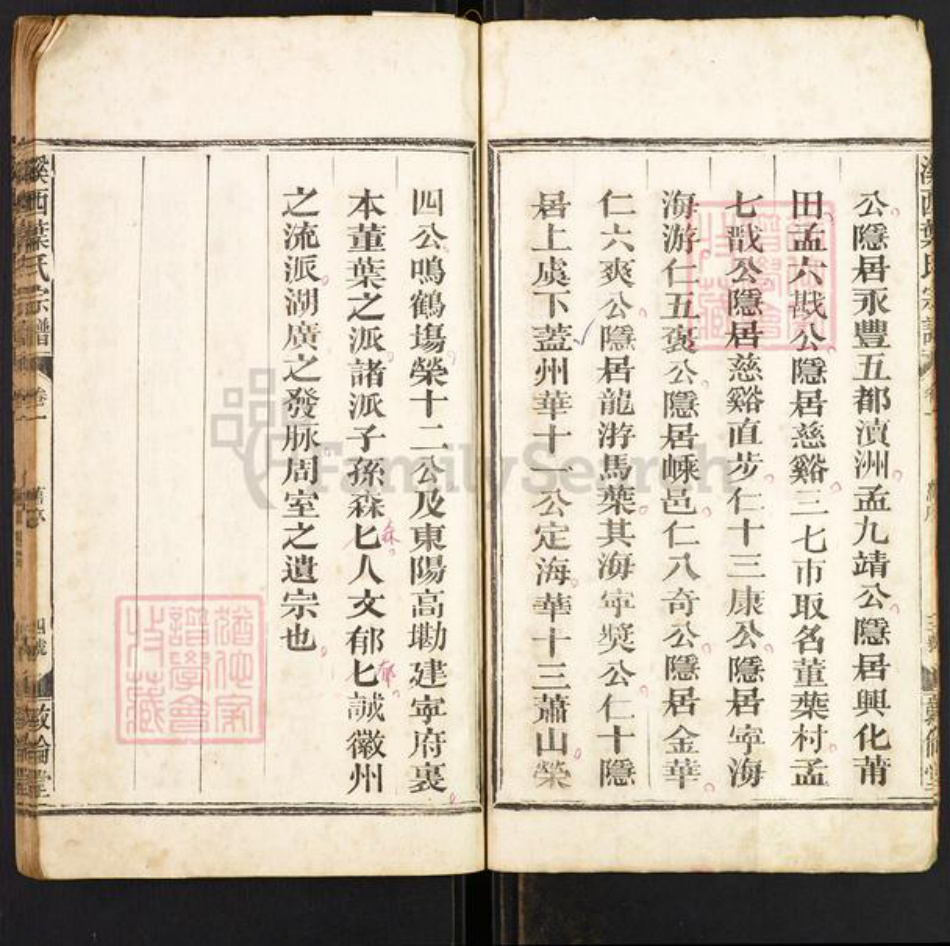 公隱居永豐五都濆洲孟九靖公隱居興化莆
田孟六戩公隱居慈谿三七市取名董葉村孟
七戬公隱居慈谿直步仁十三康公隱居寧海
海游仁五褒公隱居嵊邑仁八奇公隱居金華
仁六爽公隱居龍游馬葉其海寧奬公仁十隱
居上虞下蓋州華十一公定海華十三蕭山榮
四公鳴鶴塲榮十二公及東陽高墈建寧府裏
本董葉之派諸派子孫森匕人文郁匕誠徽州
森
郁
之流派湖廣之發脉周室之遺宗也
溪西葉氏宗譜
卷一
四號
敦倫堂
FamilySearch